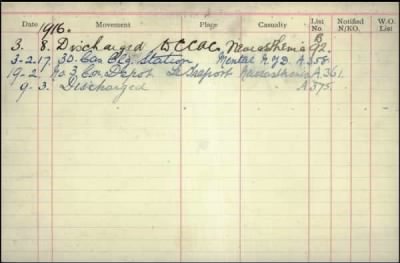 Date Movement Place Casualty List No. Notified N/KO. W.O. List
1916.
B
3. 8. Discharged D.C.C.A.C. Neurasthenia 92.
3-2.17. 30. Cas. Clg. Station Mental N.Y.D. A358.
19-2. No 3. Con. Depot Le Treport Neurasthenia A361.
9-3. Discharged A375.